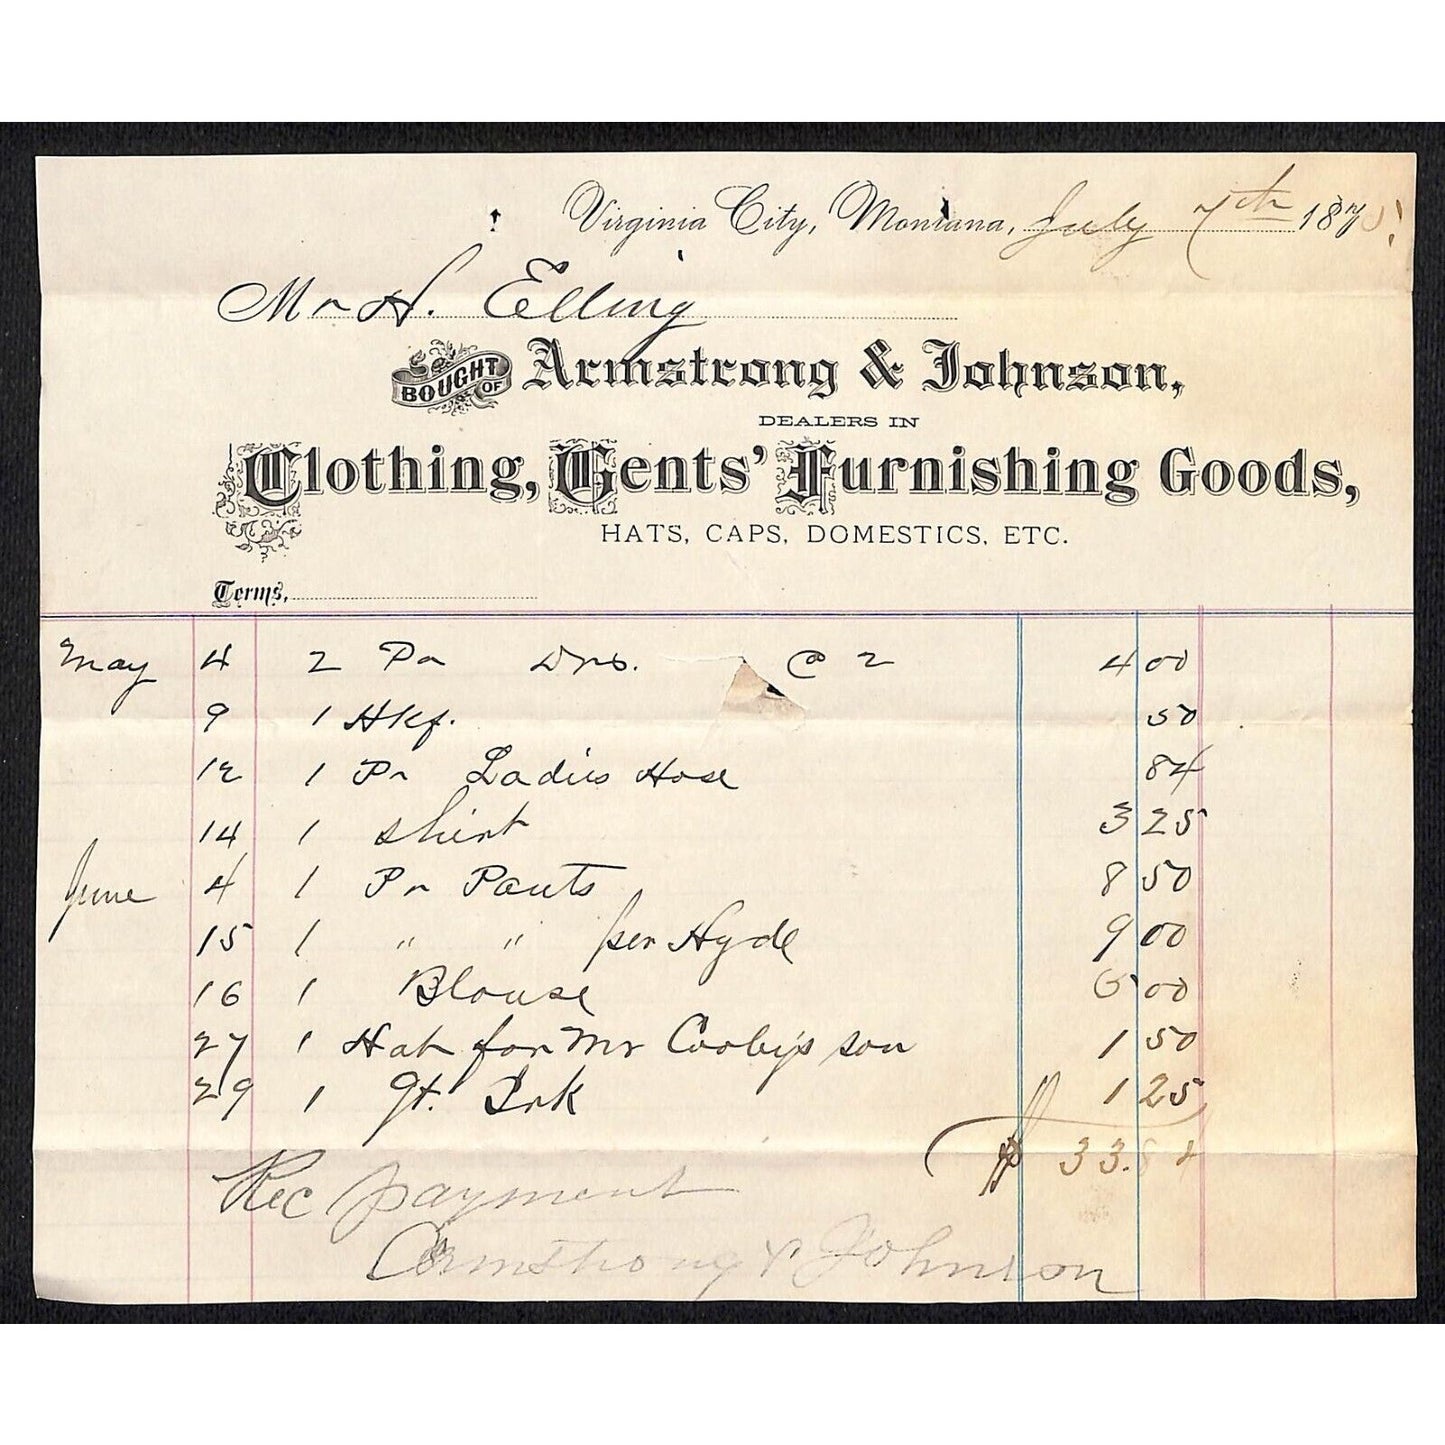 Virginia City, Montana, July 7th 1875
Mr H. Elling
BOUGHT OF Armstrong & Johnson,
DEALERS IN
Clothing, Gents' Furnishing Goods,
HATS, CAPS, DOMESTICS, ETC.
Terms,
May 4 2 Pr Drs. @ 2 4 00
9 1 Hkf. 50
12 1 Pr Ladies Hose 84
14 1 Shirt 3 25
June 4 1 Pr Pants 8 50
15 1 " " per Hyde 9 00
16 1 Blouse 5 00
27 1 Hat for Mr son 1 50
29 1 qt. Ink 1 25
$ 33.84
Rec payment
Armstrong & Johnson